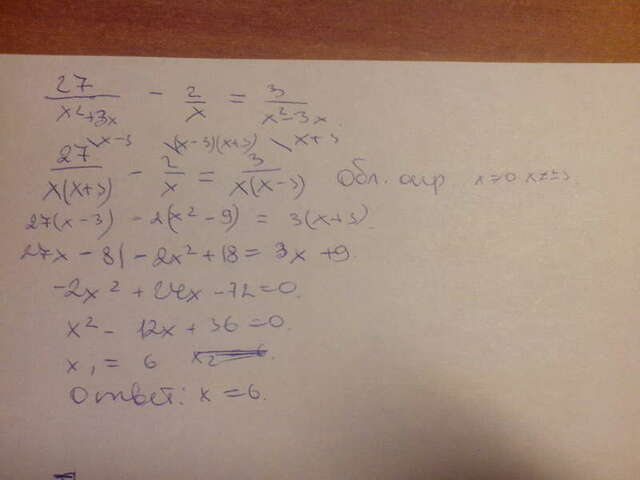 27/(x²+3x) - 2/x = 3/(x²-3x)
x-3 (x-3)(x+3) x+3
27/(x(x+3)) - 2/x = 3/(x(x-3)) Обл. опр x≠0 x≠±3
27(x-3) - 2(x²-9) = 3(x+3)
27x - 81 - 2x² + 18 = 3x + 9
-2x² + 24x - 72 = 0
x² - 12x + 36 = 0
x₁ = 6
Ответ: x = 6.